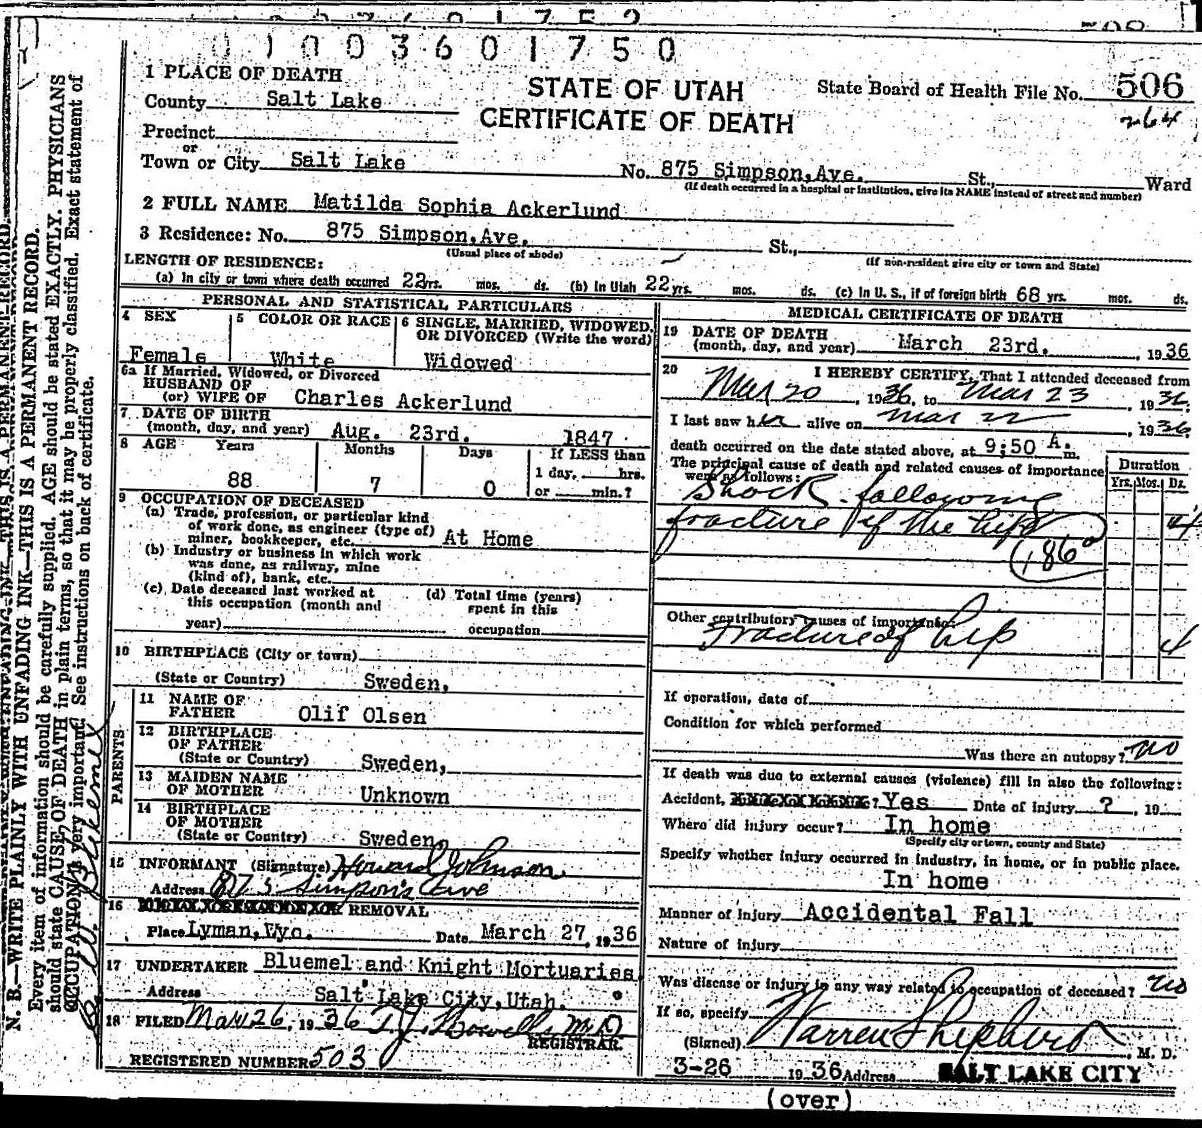 01003601750
1 PLACE OF DEATH
County Salt Lake
STATE OF UTAH
CERTIFICATE OF DEATH
State Board of Health File No. 506
264
Precinct
or
Town or City Salt Lake No. 875 Simpson, Ave. St., Ward
(If death occurred in a hospital or institution, give its NAME instead of street and number)
2 FULL NAME Matilda Sophia Ackerlund
3 Residence: No. 875 Simpson, Ave. St.,
(Usual place of abode) (If non-resident give city or town and State)
LENGTH OF RESIDENCE:
(a) In city or town where death occurred 22 yrs. mos. ds. (b) In Utah 22 yrs. mos. ds. (c) In U. S., if of foreign birth 68 yrs. mos. ds.
PERSONAL AND STATISTICAL PARTICULARS
4 SEX
Female
5 COLOR OR RACE
White
6 SINGLE, MARRIED, WIDOWED, OR DIVORCED (Write the word)
Widowed
6a If Married, Widowed, or Divorced
HUSBAND OF
(or) WIFE OF Charles Ackerlund
7 DATE OF BIRTH
(month, day, and year) Aug. 23rd. 1847
8 AGE Years Months Days If LESS than
1 day, hrs.
88 7 0 or min.?
9 OCCUPATION OF DECEASED
(a) Trade, profession, or particular kind
of work done, as engineer (type of)
miner, bookkeeper, etc. At Home
(b) Industry or business in which work
was done, as railway, mine
(kind of), bank, etc.
(c) Date deceased last worked at
this occupation (month and
year)
(d) Total time (years)
spent in this
occupation
10 BIRTHPLACE (City or town)
(State or Country) Sweden,
PARENTS
11 NAME OF
FATHER Olif Olsen
12 BIRTHPLACE
OF FATHER
(State or Country) Sweden,
13 MAIDEN NAME
OF MOTHER Unknown
14 BIRTHPLACE
OF MOTHER
(State or Country) Sweden,
15 INFORMANT (Signature) Howard Johnson
Address 875 Simpson's Ave
16 REMOVAL
Place Lyman, Wyo. Date March 27, 1936
17 UNDERTAKER Bluemel and Knight Mortuaries
Address Salt Lake City, Utah.
18 FILED Mar. 26, 1936
REGISTRAR.
REGISTERED NUMBER 503
MEDICAL CERTIFICATE OF DEATH
19 DATE OF DEATH
(month, day, and year) March 23rd. , 1936
20 I HEREBY CERTIFY, That I attended deceased from
Mar 20, 1936, to Mar 23, 1936.
I last saw her alive on Mar 22, 1936
death occurred on the date stated above, at 9:50 A. m.
The principal cause of death and related causes of importance
were as follows:
Duration
Yrs. Mos. Ds.
Shock following
fracture of the hip 4
186a
Other contributory causes of importance:
Fracture of hip 4
If operation, date of
Condition for which performed
Was there an autopsy? no
If death was due to external causes (violence) fill in also the following:
Accident, ? Yes Date of injury ? , 19
Where did injury occur? In home
(Specify city or town, county and State)
Specify whether injury occurred in industry, in home, or in public place.
In home
Manner of injury Accidental Fall
Nature of injury
Was disease or injury in any way related to occupation of deceased? no
If so, specify
(Signed) Warren Shepherd, M. D.
3-26 1936 Address SALT LAKE CITY
(over)
N. B.—WRITE PLAINLY WITH UNFADING INK—THIS IS A PERMANENT RECORD.
Every item of information should be carefully supplied. AGE should be stated EXACTLY. PHYSICIANS
should state CAUSE OF DEATH in plain terms, so that it may be properly classified. Exact statement of
OCCUPATION is very important. See instructions on back of certificate.